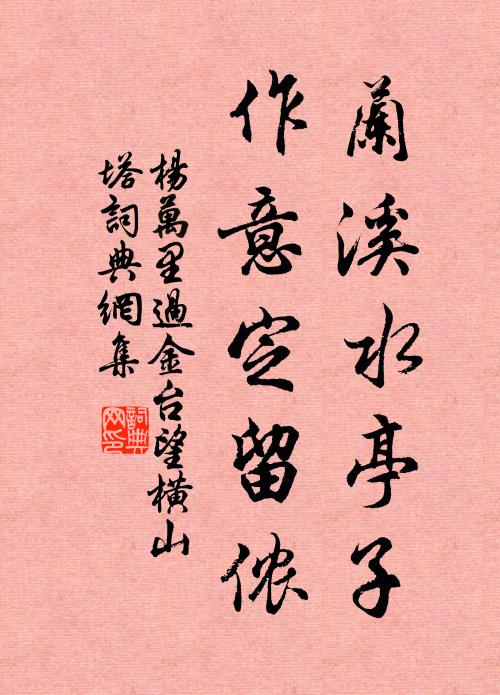 蘭溪水亭子
作意定留侬
楊萬里過金台望橫山
塔詞典網集
詞典网印